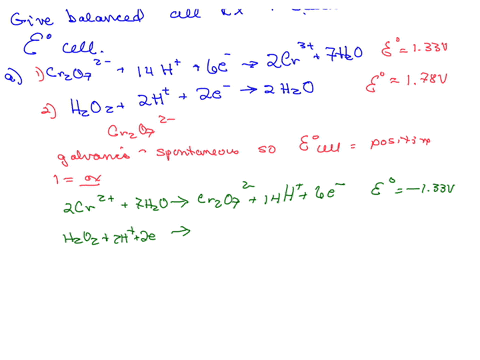 Give balanced cell Rx
E° cell.
a) 1) Cr₂O₇²⁻ + 14 H⁺ + 6e⁻ → 2Cr³⁺ + 7H₂O E° = 1.33V
2) H₂O₂ + 2H⁺ + 2e⁻ → 2 H₂O E° = 1.78V
Cr₂O₇²⁻
galvanic - spontaneous so E°cell = positive
1 = ox
2Cr²⁺ + 7H₂O → Cr₂O₇²⁻ + 14H⁺ + 6e⁻ E° = -1.33V
H₂O₂ + 2H⁺ + 2e →